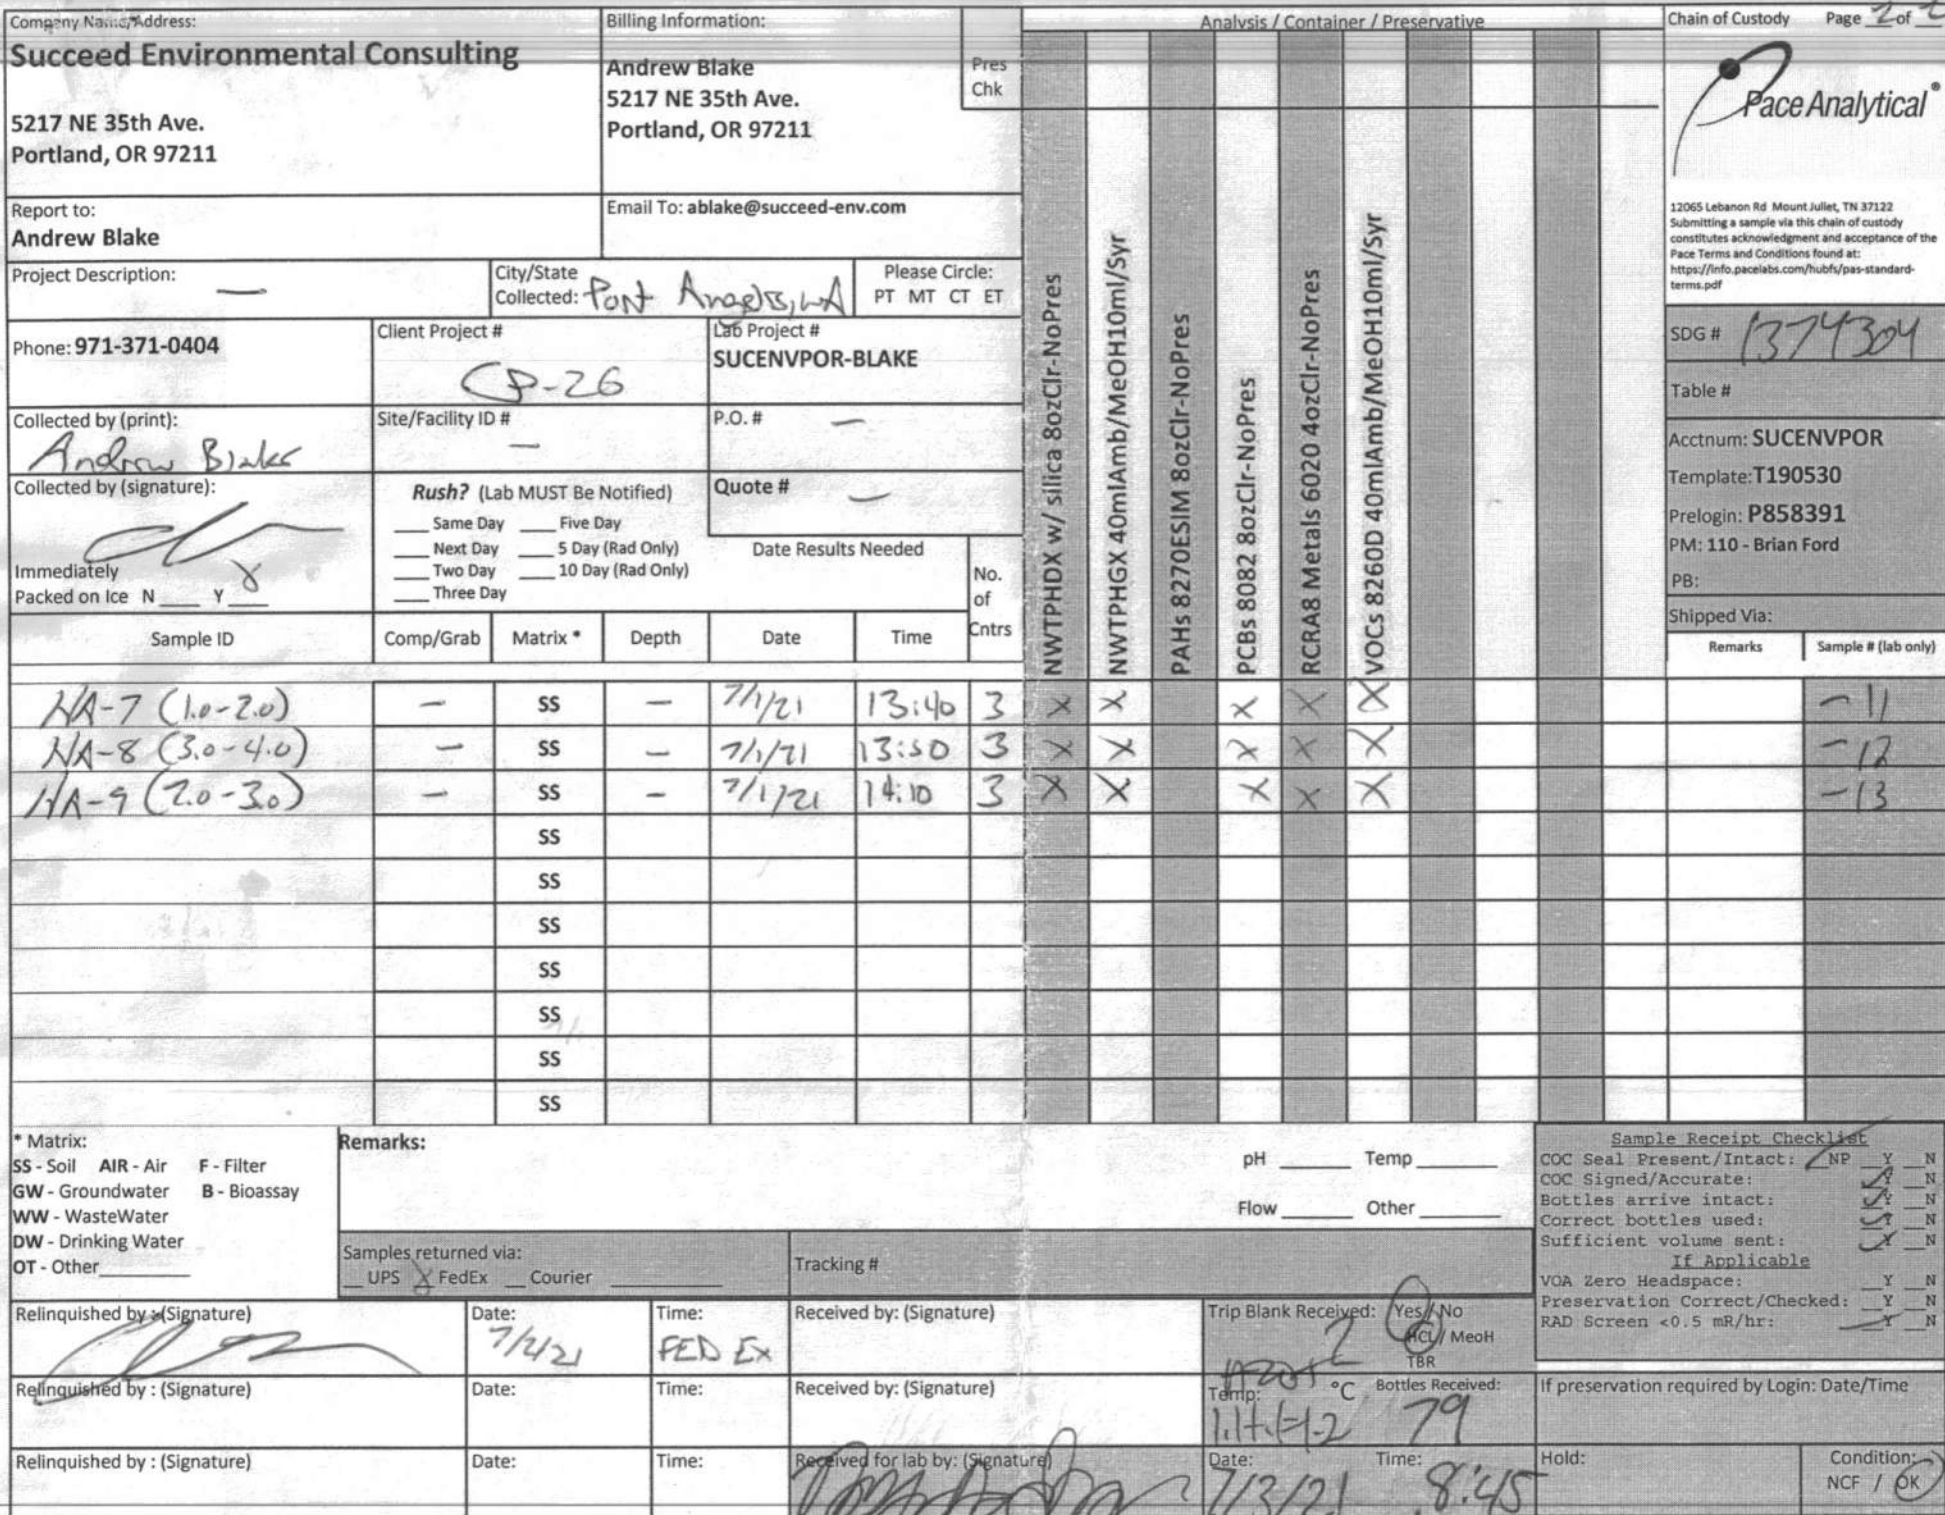 Company Name/Address:
Succeed Environmental Consulting
5217 NE 35th Ave.
Portland, OR 97211
Billing Information:
Andrew Blake
5217 NE 35th Ave.
Portland, OR 97211
Pres
Chk
Analysis / Container / Preservative
Chain of Custody Page 2 of 2
Pace Analytical®
12065 Lebanon Rd Mount Juliet, TN 37122
Submitting a sample via this chain of custody
constitutes acknowledgment and acceptance of the
Pace Terms and Conditions found at:
https://info.pacelabs.com/hubfs/pas-standard-
terms.pdf
Report to:
Andrew Blake
Email To: ablake@succeed-env.com
Project Description: —
City/State
Collected: Port Angeles, WA
Please Circle:
PT MT CT ET
Phone: 971-371-0404
Client Project #
CP-26
Lab Project #
SUCENVPOR-BLAKE
SDG # 1374304
Table #
Collected by (print):
Andrew Blake
Site/Facility ID #
—
P.O. # —
Acctnum: SUCENVPOR
Template: T190530
Prelogin: P858391
PM: 110 - Brian Ford
PB:
Shipped Via:
Collected by (signature):
Immediately
Packed on Ice N ____ Y X
Rush? (Lab MUST Be Notified)
____ Same Day ____ Five Day
____ Next Day ____ 5 Day (Rad Only)
____ Two Day ____ 10 Day (Rad Only)
____ Three Day
Quote # —
Date Results Needed
No.
of
Cntrs
NWTPHDX w/ silica 8ozClr-NoPres
NWTPHGX 40mlAmb/MeOH10ml/Syr
PAHs 8270ESIM 8ozClr-NoPres
PCBs 8082 8ozClr-NoPres
RCRA8 Metals 6020 4ozClr-NoPres
VOCs 8260D 40mlAmb/MeOH10ml/Syr
Sample ID Comp/Grab Matrix * Depth Date Time Remarks Sample # (lab only)
HA-7 (1.0-2.0) — SS — 7/1/21 13:40 3 X X X X X -11
HA-8 (3.0-4.0) — SS — 7/1/21 13:50 3 X X X X X -12
HA-9 (2.0-3.0) — SS — 7/1/21 14:10 3 X X X X X -13
SS
SS
SS
SS
SS
SS
SS
* Matrix:
SS - Soil AIR - Air F - Filter
GW - Groundwater B - Bioassay
WW - WasteWater
DW - Drinking Water
OT - Other____
Remarks:
pH ____ Temp ____
Flow ____ Other ____
Samples returned via:
__ UPS X FedEx __ Courier ____
Tracking #
Sample Receipt Checklist
COC Seal Present/Intact: NP Y N
COC Signed/Accurate: Y N
Bottles arrive intact: Y N
Correct bottles used: Y N
Sufficient volume sent: Y N
If Applicable
VOA Zero Headspace: Y N
Preservation Correct/Checked: Y N
RAD Screen <0.5 mR/hr: Y N
Relinquished by : (Signature)
Date:
7/2/21
Time:
FED EX
Received by: (Signature)
Trip Blank Received: Yes / No
2
HCL / MeoH
TBR
Relinquished by : (Signature)
Date:
Time:
Received by: (Signature)
Temp: °C
Bottles Received:
79
If preservation required by Login: Date/Time
Relinquished by : (Signature)
Date:
Time:
Received for lab by: (Signature)
Date:
7/3/21
Time:
8:45
Hold:
Condition:
NCF / OK